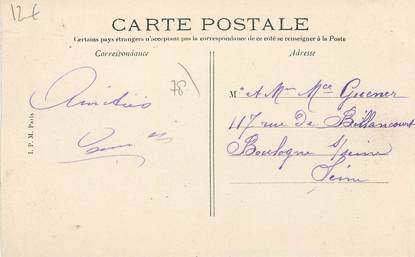 12€
CARTE POSTALE
Certains pays étrangers n'acceptant pas la correspondance de ce côté se renseigner à la Poste
Correspondance
Adresse
78)
Amitiés
I. P. M. Paris
M^e A M^me M^ce Guener
47 rue De Billancourt
Boulogne s/seine
Seine